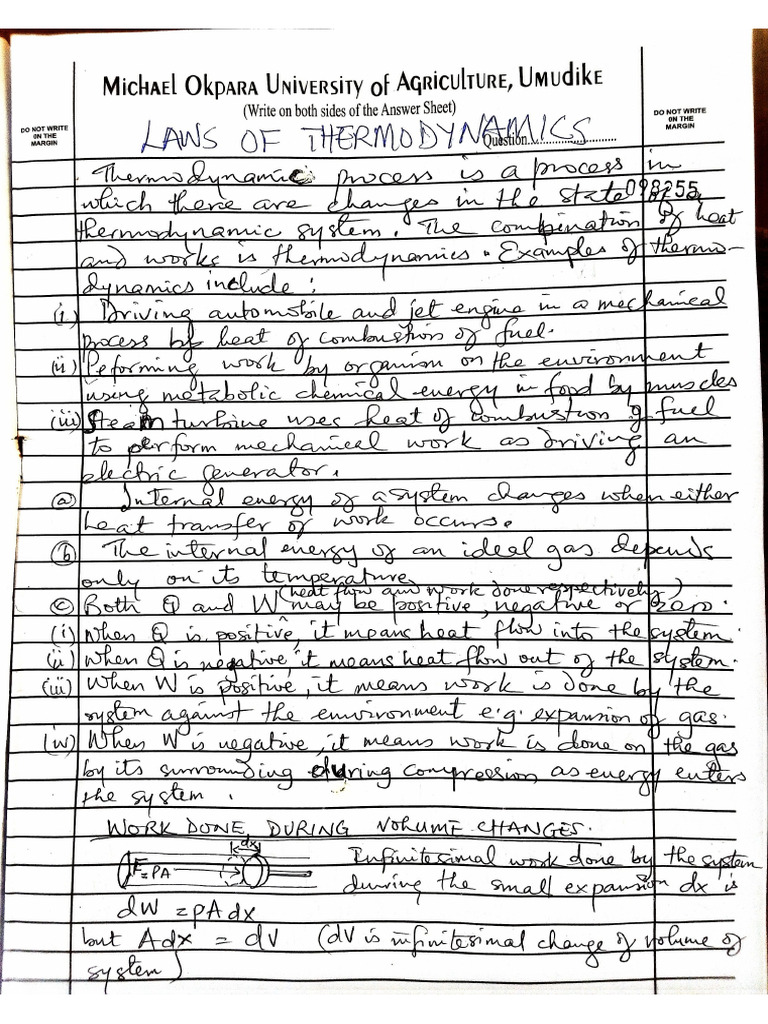 MICHAEL OKPARA UNIVERSITY of AGRICULTURE, UMUDIKE
(Write on both sides of the Answer Sheet)
DO NOT WRITE
ON THE
MARGIN
DO NOT WRITE
ON THE
MARGIN
LAWS OF THERMODYNAMICS
Question..............................
Thermodynamic process is a process in
098255
which there are changes in the state of a
thermodynamic system. The combination of heat
and works is thermodynamics. Examples of thermo-
dynamics include:
(i) Driving automobile and jet engine in a mechanical
process by heat of combustion of fuel.
(ii) Peforming work by organism on the environment
using metabolic chemical energy in food by muscles
(iii) Steam turbine uses heat of combustion of fuel
to perform mechanical work as driving an
electric generator.
(a) Internal energy of a system changes when either
heat transfer or work occurs.
(b) The internal energy of an ideal gas depends
only on its temperature
(heat flow and work done respectively)
(c) Both Q and W may be positive, negative or zero.
(i) When Q is positive, it means heat flow into the system.
(ii) When Q is negative, it means heat flow out of the system.
(iii) When W is positive, it means work is done by the
system against the environment e.g. expansion of gas.
(iv) When W is negative, it means work is done on the gas
by its surrounding during compression as energy enters
the system.
WORK DONE DURING VOLUME CHANGES.
dx
F=PA
Infinitesimal work done by the system
during the small expansion dx is
dW = pAdx
but Adx = dV (dV is infinitesimal change of volume of
system)